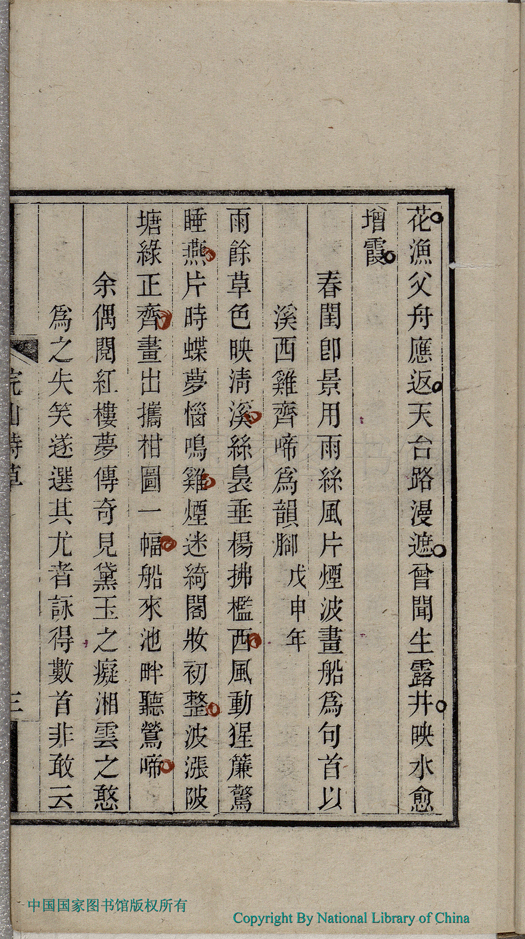 花漁父舟應返天台路漫遮曾聞生露井映水愈
增霞
春閨卽景用雨絲風片煙波畫船爲句首以
溪西雞齊啼爲韻腳 戊申年
雨餘草色映清溪絲裊垂楊拂檻西風動猩簾驚
睡燕片時蝶夢惱鳴雞煙迷綺閣妝初整波漲陂
塘綠正齊畫出攜柑圖一幅船來池畔聽鶯啼
余偶閱紅樓夢傳奇見黛玉之癡湘雲之憨
爲之失笑遂選其尤者詠得數首非敢云
山詩草
三
中国国家图书馆版权所有
Copyright By National Library of China